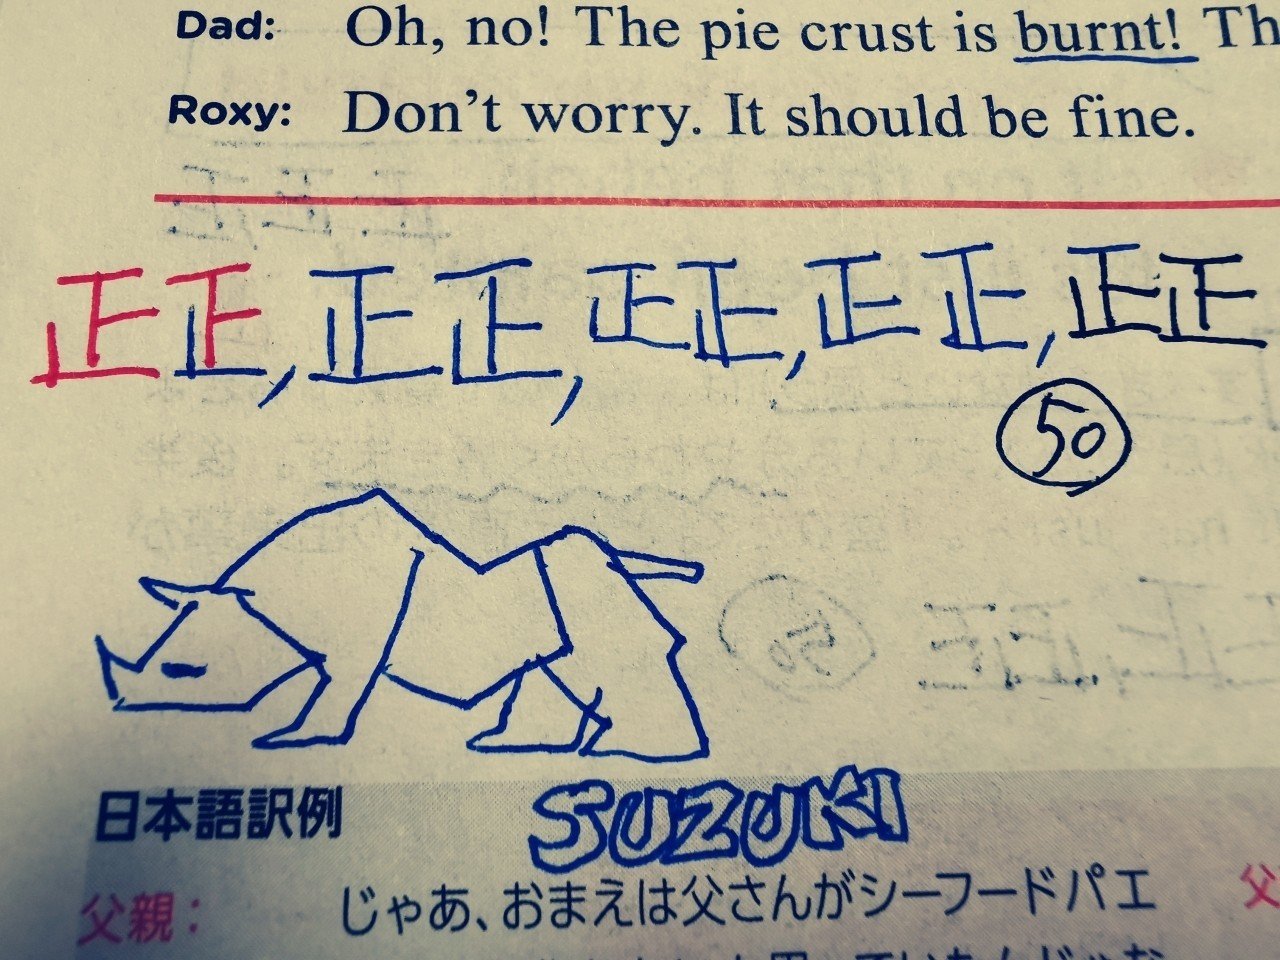 Dad: Oh, no! The pie crust is burnt! Th
Roxy: Don't worry. It should be fine.
正正, 正正, 正正, 正正, 正正
50
日本語訳例
SUZUKI
父親： じゃあ、おまえは父さんがシーフードパエ 父